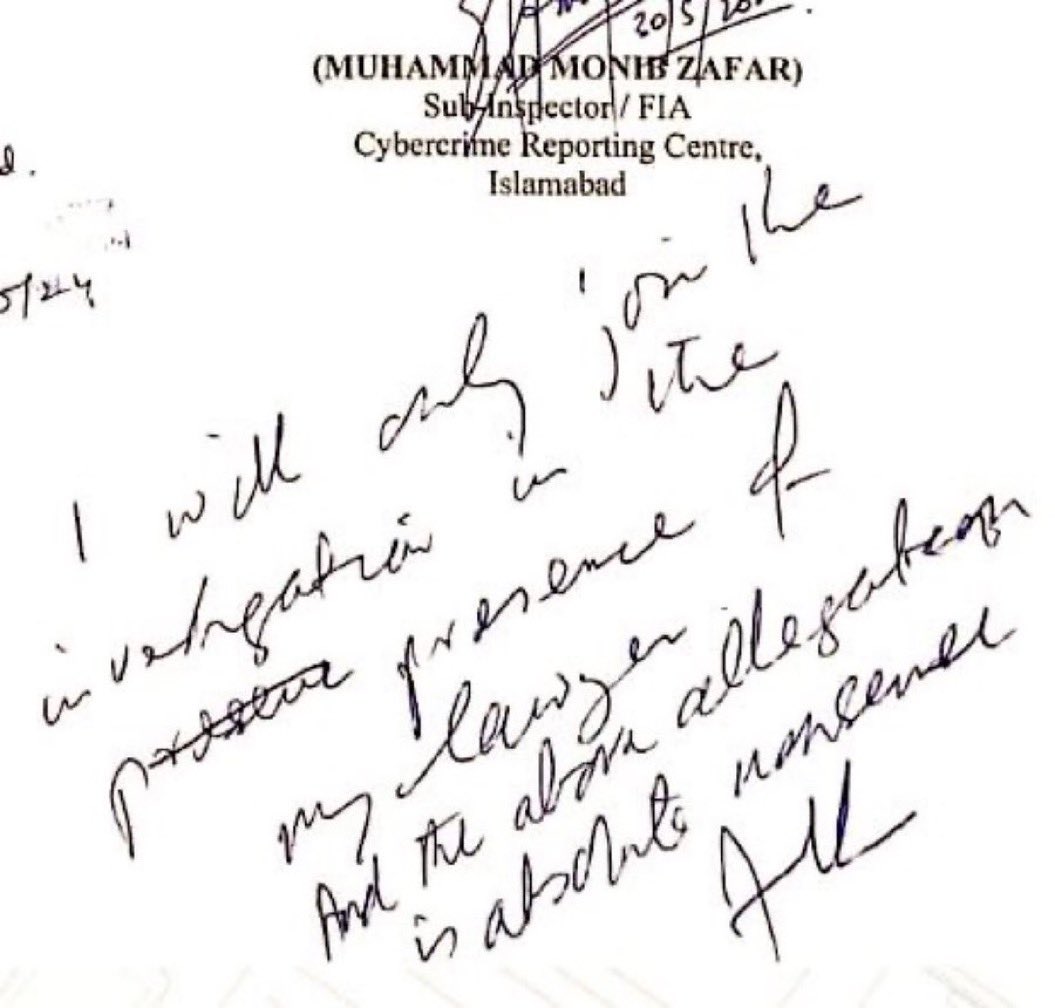 20/5/20
(MUHAMMAD MONIB ZAFAR)
Sub-Inspector / FIA
Cybercrime Reporting Centre,
Islamabad
d.
5/24
I will only join the
investigation in the
presence of
my lawyer
And the above allegation
is absolute nonsense